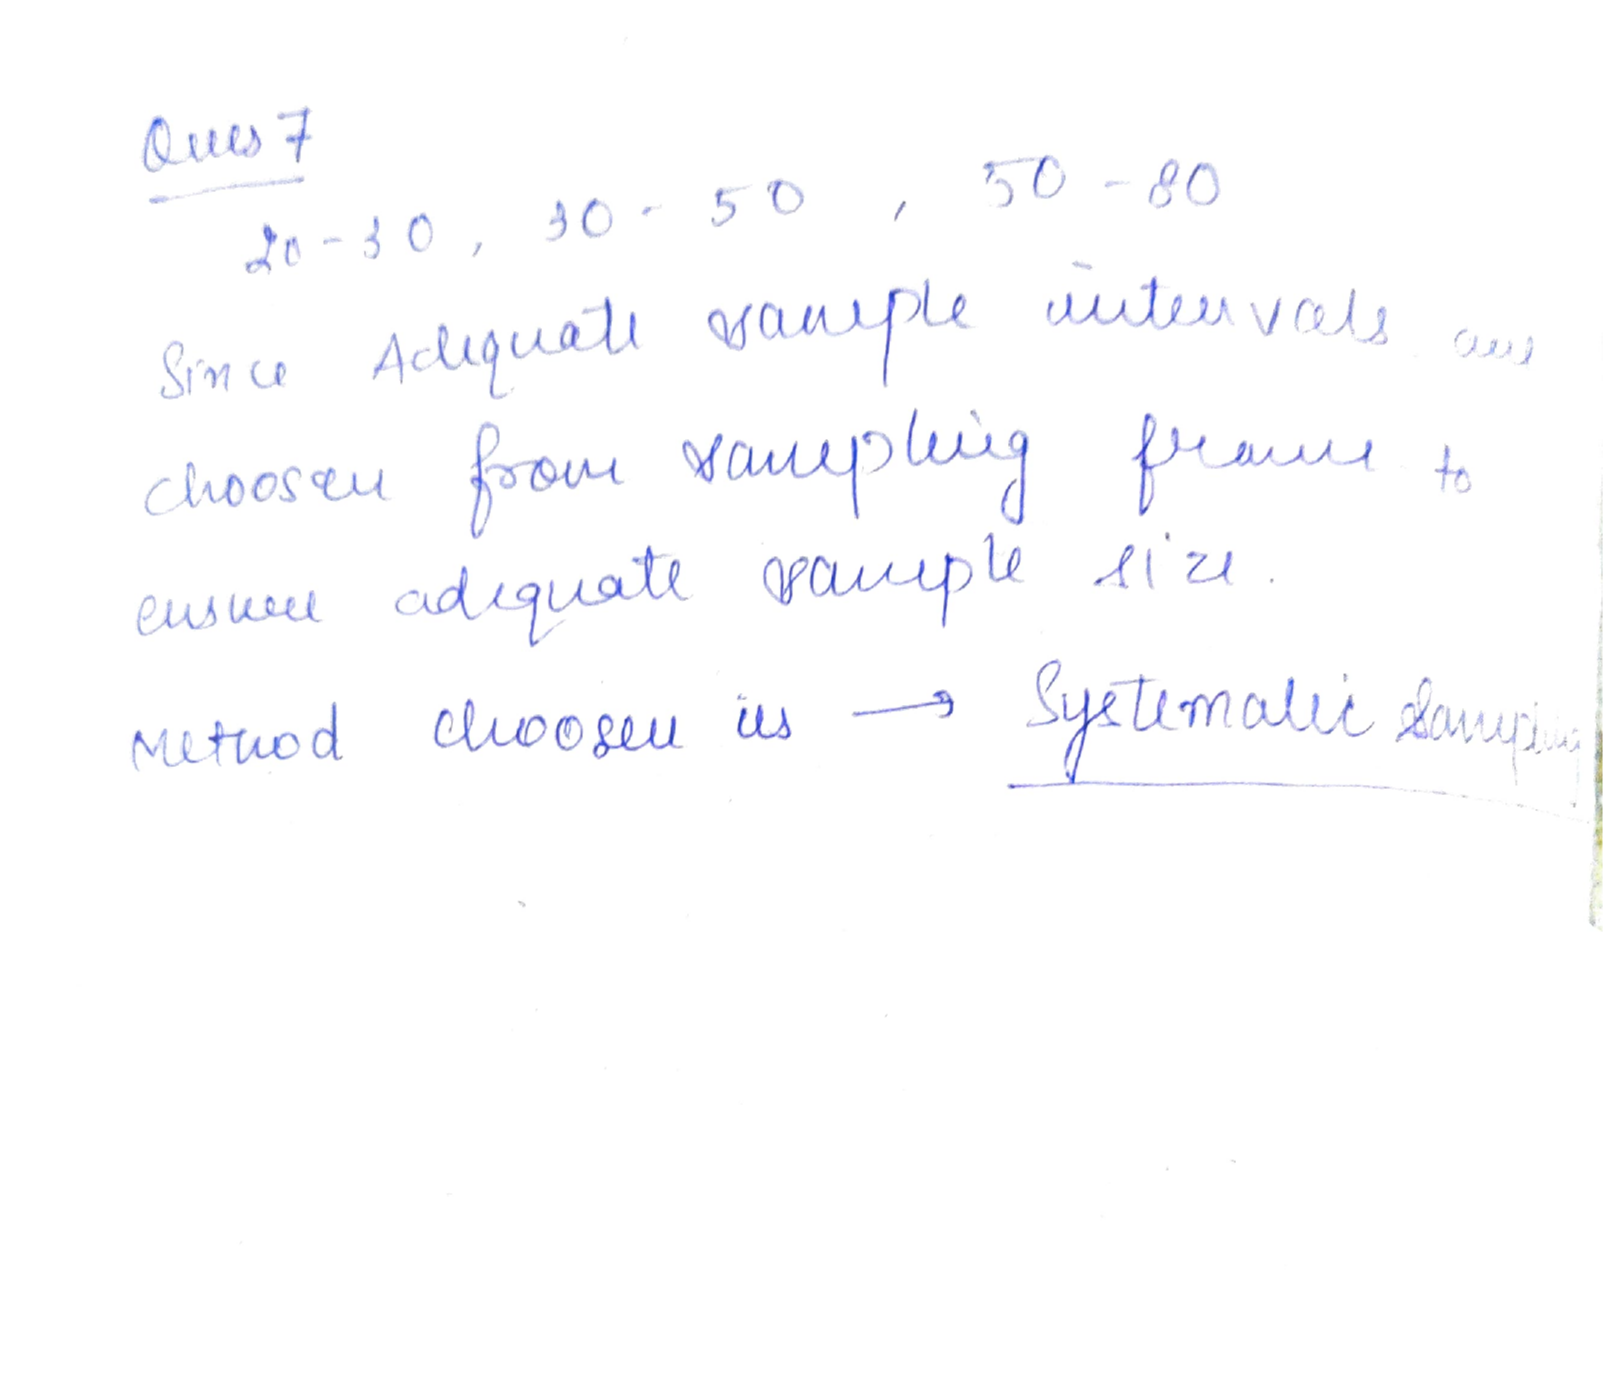 Ques 7
20-30, 30-50, 50-80
Since Adequate sample intervals are
choosen from sampling frame to
ensure adequate sample size.
Method choosen is → Systematic Sampling